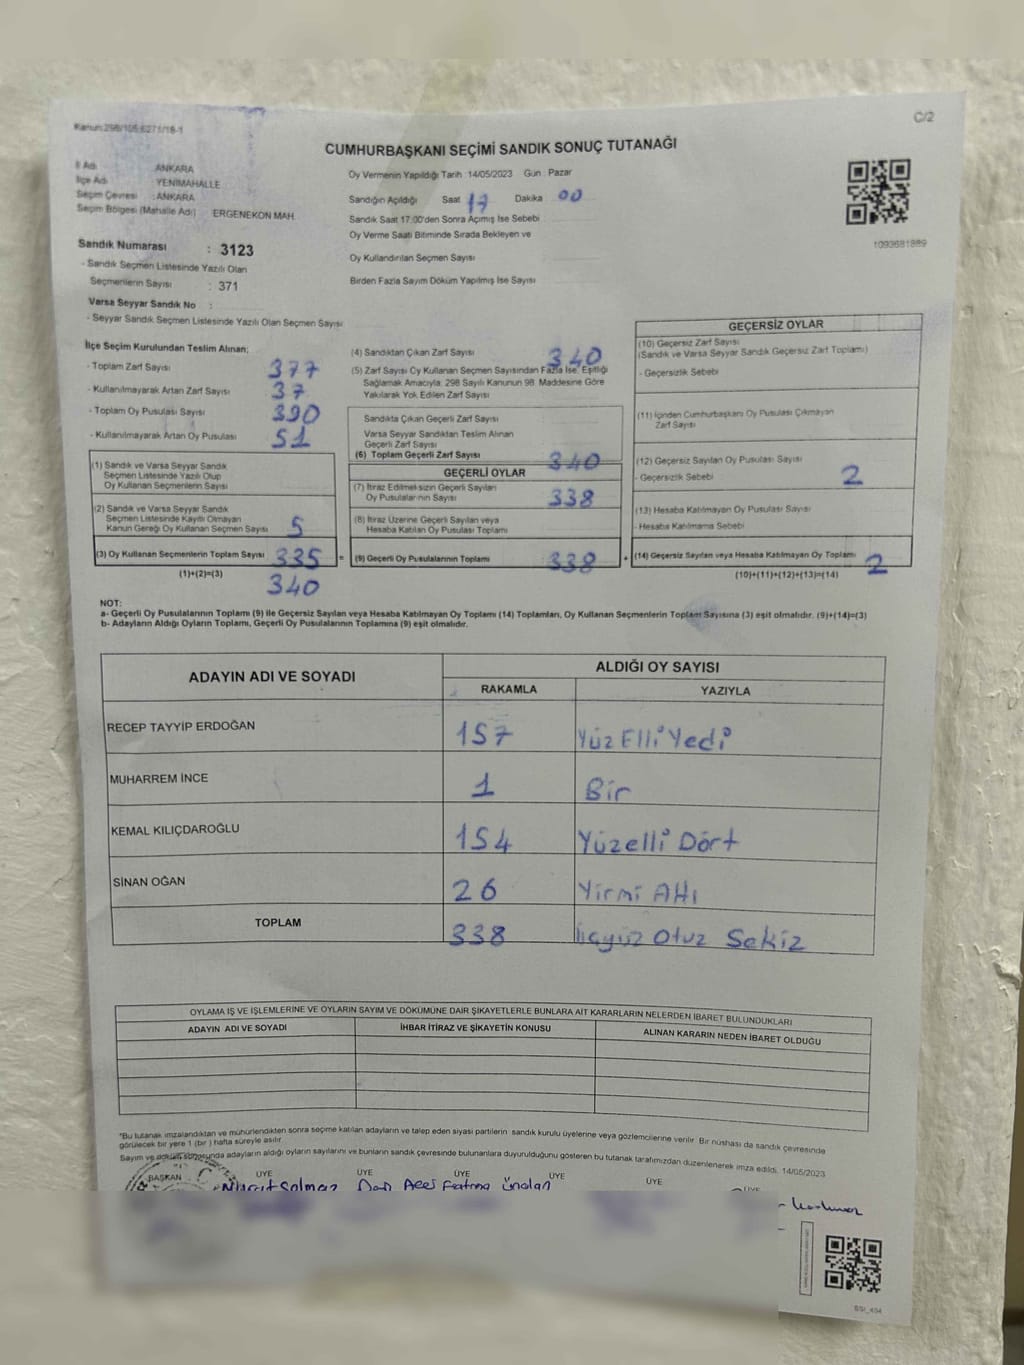 Kanun:298/105;6271/18-1
C/2
CUMHURBAŞKANI SEÇİMİ SANDIK SONUÇ TUTANAĞI
İl Adı : ANKARA
İlçe Adı : YENİMAHALLE
Seçim Çevresi : ANKARA
Seçim Bölgesi (Mahalle Adı) ERGENEKON MAH.
Oy Vermenin Yapıldığı Tarih :14/05/2023 Gün : Pazar
Sandığın Açıldığı Saat 17 Dakika 00
Sandık Saat 17:00'den Sonra Açmış İse Sebebi
Oy Verme Saati Bitiminde Sırada Bekleyen ve
Oy Kullandırılan Seçmen Sayısı
Birden Fazla Sayım Döküm Yapılmış İse Sayısı
1093681889
Sandık Numarası : 3123
- Sandık Seçmen Listesinde Yazılı Olan
Seçmenlerin Sayısı : 371
Varsa Seyyar Sandık No :
- Seyyar Sandık Seçmen Listesinde Yazılı Olan Seçmen Sayısı
İlçe Seçim Kurulundan Teslim Alınan;
- Toplam Zarf Sayısı 377
- Kullanılmayarak Artan Zarf Sayısı 37
- Toplam Oy Pusulası Sayısı 390
- Kullanılmayarak Artan Oy Pusulası 51
(1) Sandık ve Varsa Seyyar Sandık
Seçmen Listesinde Yazılı Olup
Oy Kullanan Seçmenlerin Sayısı
(2) Sandık ve Varsa Seyyar Sandık
Seçmen Listesinde Kayıtlı Olmayan
Kanun Gereği Oy Kullanan Seçmen Sayısı 5
(3) Oy Kullanan Seçmenlerin Toplam Sayısı 335 =
(1)+(2)=(3)
340
(4) Sandıktan Çıkan Zarf Sayısı 340
(5) Zarf Sayısı Oy Kullanan Seçmen Sayısından Fazla İse, Eşitliği
Sağlamak Amacıyla; 298 Sayılı Kanunun 98. Maddesine Göre
Yakılarak Yok Edilen Zarf Sayısı
Sandıkta Çıkan Geçerli Zarf Sayısı
Varsa Seyyar Sandıktan Teslim Alınan
Geçerli Zarf Sayısı
(6) Toplam Geçerli Zarf Sayısı 340
GEÇERLİ OYLAR
(7) İtiraz Edilmeksizin Geçerli Sayılan
Oy Pusulalarının Sayısı 338
(8) İtiraz Üzerine Geçerli Sayılan veya
Hesaba Katılan Oy Pusulası Toplamı
(9) Geçerli Oy Pusulalarının Toplamı 338 +
GEÇERSİZ OYLAR
(10) Geçersiz Zarf Sayısı
(Sandık ve Varsa Seyyar Sandık Geçersiz Zarf Toplamı)
- Geçersizlik Sebebi
(11) İçinden Cumhurbaşkanı Oy Pusulası Çıkmayan
Zarf Sayısı
(12) Geçersiz Sayılan Oy Pusulası Sayısı 2
- Geçersizlik Sebebi
(13) Hesaba Katılmayan Oy Pusulası Sayısı
- Hesaba Katılmama Sebebi
(14) Geçersiz Sayılan veya Hesaba Katılmayan Oy Toplamı 2
(10)+(11)+(12)+(13)=(14)
NOT:
a- Geçerli Oy Pusulalarının Toplamı (9) ile Geçersiz Sayılan veya Hesaba Katılmayan Oy Toplamı (14) Toplamları, Oy Kullanan Seçmenlerin Toplam Sayısına (3) eşit olmalıdır. (9)+(14)=(3)
b- Adayların Aldığı Oyların Toplamı, Geçerli Oy Pusulalarının Toplamına (9) eşit olmalıdır.
ADAYIN ADI VE SOYADI
ALDIĞI OY SAYISI
RAKAMLA YAZIYLA
RECEP TAYYİP ERDOĞAN 157 Yüz Elli Yedi
MUHARREM İNCE 1 Bir
KEMAL KILIÇDAROĞLU 154 Yüzelli Dört
SİNAN OĞAN 26 Yirmi Altı
TOPLAM 338 üçyüz Otuz Sekiz
OYLAMA İŞ VE İŞLEMLERİNE VE OYLARIN SAYIM VE DÖKÜMÜNE DAİR ŞİKAYETLERLE BUNLARA AİT KARARLARIN NELERDEN İBARET BULUNDUKLARI
ADAYIN ADI VE SOYADI İHBAR İTİRAZ VE ŞİKAYETİN KONUSU ALINAN KARARIN NEDEN İBARET OLDUĞU
*Bu tutanak imzalandıktan ve mühürlendikten sonra seçime katılan adayların ve talep eden siyasi partilerin sandık kurulu üyelerine veya gözlemcilerine verilir. Bir nüshası da sandık çevresinde
görülecek bir yere 1 (bir) hafta süreyle asılır.
Sayım ve döküm sonunda adayların aldığı oyların sayılarını ve bunların sandık çevresinde bulunanlara duyurulduğunu gösteren bu tutanak tarafımızdan düzenlenerek imza edildi. 14/05/2023
BAŞKAN ÜYE ÜYE ÜYE ÜYE ÜYE ÜYE
Fatma Ünalan
SSI_404